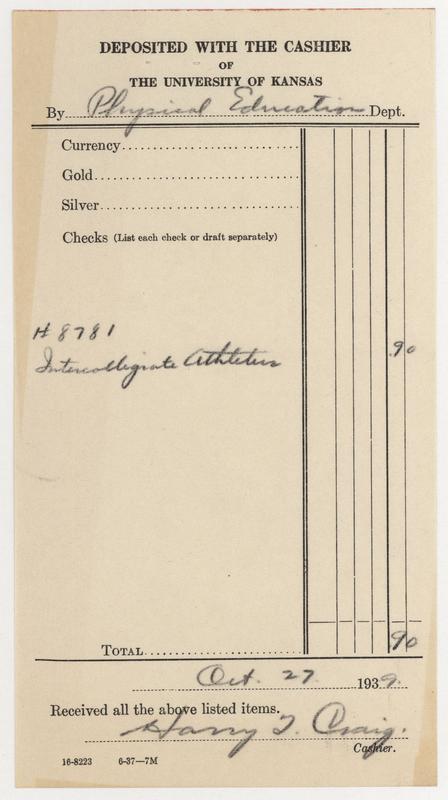 DEPOSITED WITH THE CASHIER
OF
THE UNIVERSITY OF KANSAS
By Physical Education Dept.
Currency
Gold
Silver
Checks (List each check or draft separately)
# 8781
Intercollegiate Athletics .90
TOTAL .90
Oct. 27 1939.
Received all the above listed items.
Harry I. Craig.
Cashier.
16-8223 6-37—7M